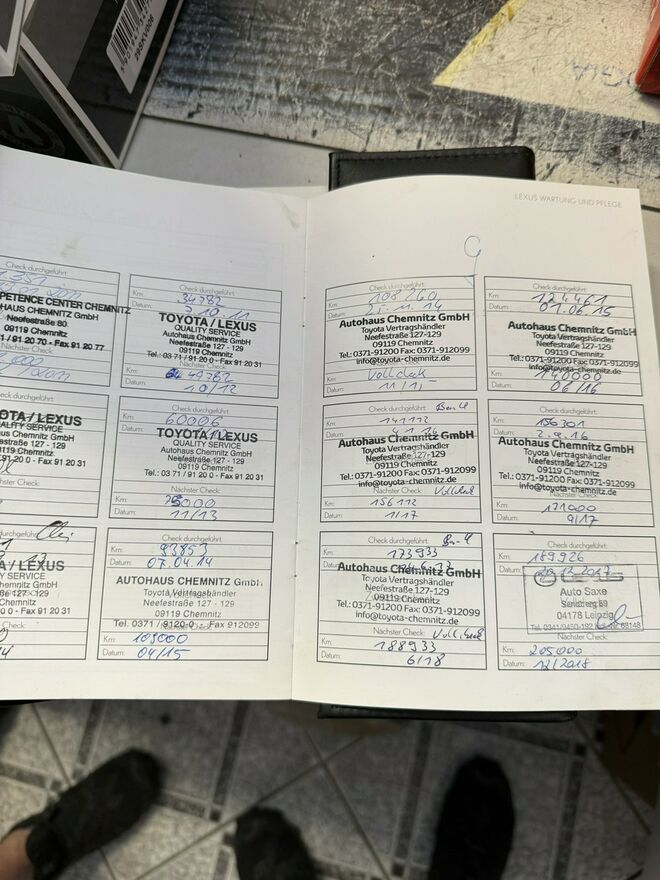 LEXUS WARTUNG UND PFLEGE
Check durchgeführt:
PETENCE CENTER CHEMNITZ
HAUS CHEMNITZ GmbH
Neefestraße 80
09119 Chemnitz
1 / 91 20 70 - Fax 91 20 77
OTA / LEXUS
QUALITY SERVICE
us Chemnitz GmbH
estraße 127 - 129
09119 Chemnitz
/ 91 20 0 - Fax 91 20 31
urchgeführt:
A / LEXUS
Y SERVICE
hemnitz GmbH
ße 127 - 129
Chemnitz
0 - Fax 91 20 31
Check durchgeführt:
Km: 34782
Datum: 3.10.11
TOYOTA / LEXUS
QUALITY SERVICE
Autohaus Chemnitz GmbH
Neefestraße 127 - 129
09119 Chemnitz
Tel.: 03 71 / 91 20 0 - Fax 91 20 31
Km:
Datum: 10/12
Check durchgeführt:
Km: 60006
Datum:
TOYOTA / LEXUS
QUALITY SERVICE
Autohaus Chemnitz GmbH
Neefestraße 127 - 129
09119 Chemnitz
Tel.: 03 71 / 91 20 0 - Fax 91 20 31
Nächster Check:
Km:
Datum: 11/13
Check durchgeführt:
Km: 93853
Datum: 07.04.14
AUTOHAUS CHEMNITZ GmbH
Toyota Vertragshändler
Neefestraße 127 - 129
09119 Chemnitz
Tel. 0371 / 9120-0 Fax 912099
Km: 109000
Datum: 04/15
Check durchgeführt:
Km: 108260
Datum: 25.11.14
Autohaus Chemnitz GmbH
Toyota Vertragshändler
Neefestraße 127-129
09119 Chemnitz
Tel.: 0371-91200 Fax: 0371-912099
info@toyota-chemnitz.de
Km: Vollcheck
Datum: 11/15
Check durchgeführt:
Km: 124461
Datum: 01.06.15
Autohaus Chemnitz GmbH
Toyota Vertragshändler
Neefestraße 127-129
09119 Chemnitz
Tel.: 0371-91200 Fax: 0371-912099
info@toyota-chemnitz.de
Km: 140000
Datum: 06/16
Check durchgeführt:
Km: 141112
Datum:
Autohaus Chemnitz GmbH
Toyota Vertragshändler
Neefestraße 127-129
09119 Chemnitz
Tel.: 0371-91200 Fax: 0371-912099
info@toyota-chemnitz.de
Nächster Check: Vollcheck
Km: 156112
Datum: 1/17
Check durchgeführt:
Km: 156301
Datum: 2.9.16
Autohaus Chemnitz GmbH
Toyota Vertragshändler
Neefestraße 127-129
09119 Chemnitz
Tel.: 0371-91200 Fax: 0371-912099
info@toyota-chemnitz.de
Nächster Check:
Km: 171000
Datum: 9/17
Check durchgeführt:
Km: 173933
Datum:
Autohaus Chemnitz GmbH
Toyota Vertragshändler
Neefestraße 127-129
09119 Chemnitz
Tel.: 0371-91200 Fax: 0371-912099
info@toyota-chemnitz.de
Nächster Check: Vollcheck
Km: 188933
Datum: 6/18
Check durchgeführt:
Km: 189926
Datum: 20.12.2017
Auto Saxe
Sandberg 59
04178 Leipzig
Tel. 0341/9450-192
Nächster Check:
Km: 205000
Datum: 12/2018